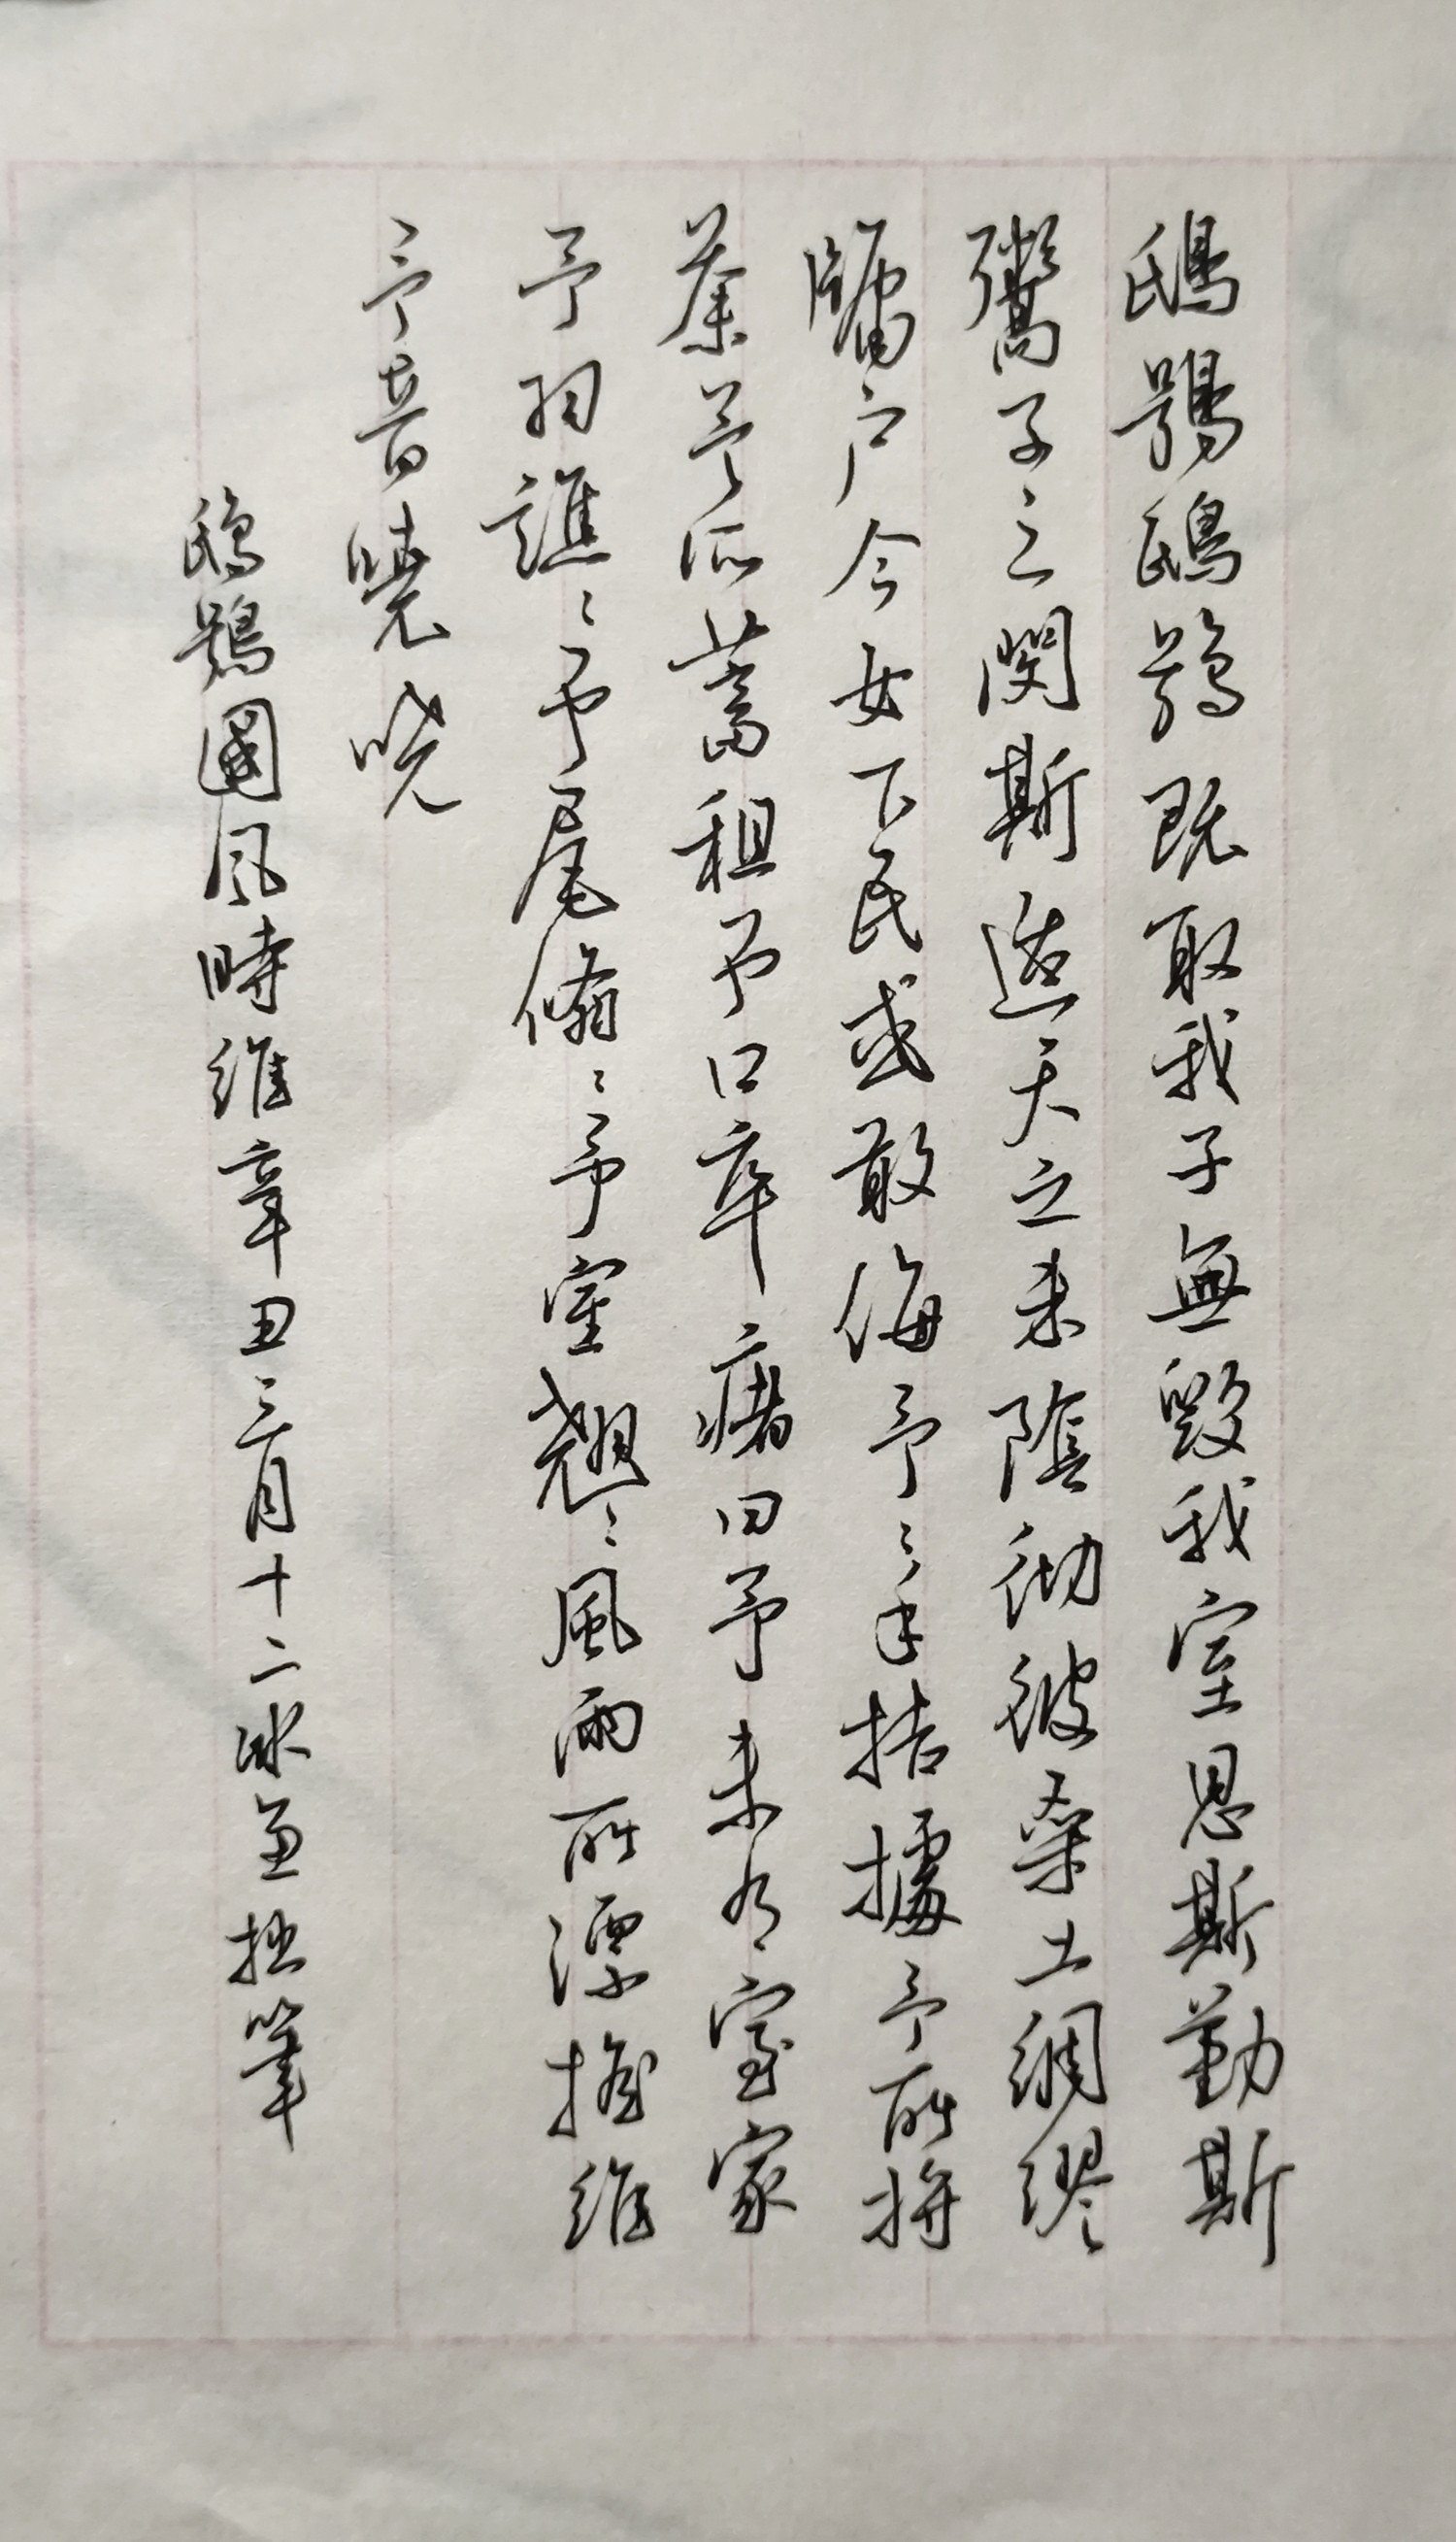 鴟鴞鴟鴞既取我子無毀我室恩斯勤斯
鬻子之閔斯迨天之未陰徹彼桑土綢繆
牖户今女下民或敢侮予〻手拮據予所捋
荼予所蓄租予口卒瘏曰予未有室家
予羽譙〻予尾翛〻予室翹〻風雨所漂搖維
予音嘵哓
鴟鴞國风時維辛丑三月十二冰魚拙筆